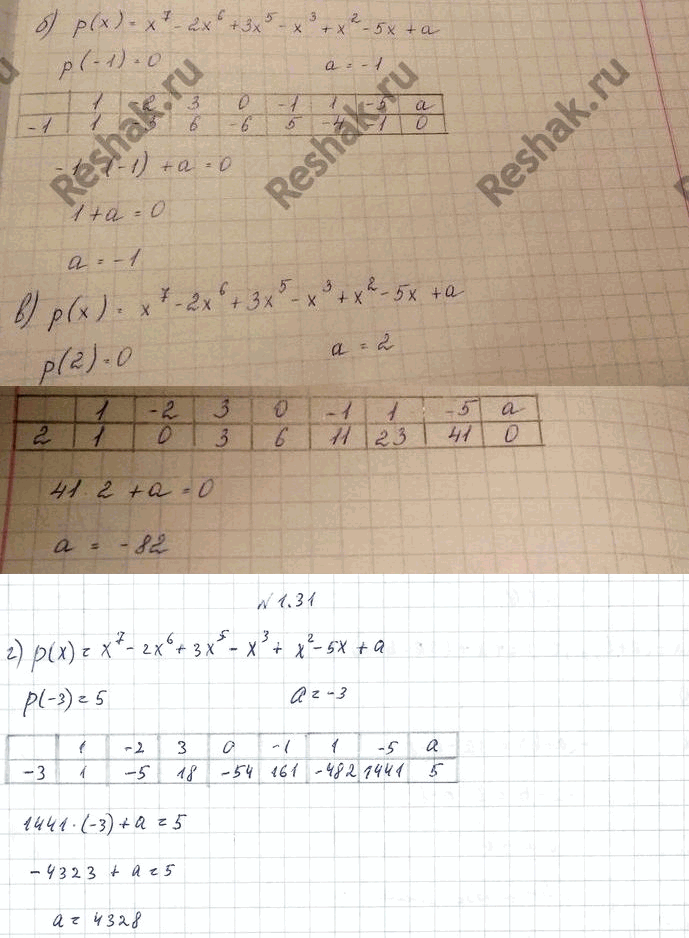 б) p(x) = x⁷ - 2x⁶ + 3x⁵ - x³ + x² - 5x + a
p(-1) = 0 a = -1
1 -2 3 0 -1 1 -5 a
-1 1 -3 6 -6 5 -4 -1 0
-1 · (-1) + a = 0
1 + a = 0
a = -1
в) p(x) = x⁷ - 2x⁶ + 3x⁵ - x³ + x² - 5x + a
p(2) = 0 a = 2
1 -2 3 0 -1 1 -5 a
2 1 0 3 6 11 23 41 0
41 · 2 + a = 0
a = -82
№ 1.31
г) p(x) = x⁷ - 2x⁶ + 3x⁵ - x³ + x² - 5x + a
p(-3) = 5 a = -3
1 -2 3 0 -1 1 -5 a
-3 1 -5 18 -54 161 -482 1441 5
1441 · (-3) + a = 5
-4323 + a = 5
a = 4328
Reshak.ru
Reshak.ru
Reshak.ru